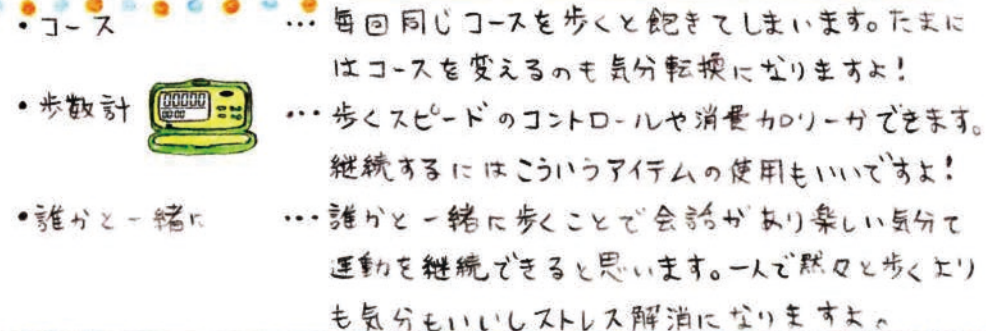 ・コース ・・・ 毎回同じコースを歩くと飽きてしまいます。たまに
はコースを変えるのも気分転換になりますよ!
・歩数計 00000 00:00 ・・・ 歩くスピードのコントロールや消費カロリーができます。
継続するにはこういうアイテムの使用もいいですよ!
・誰かと一緒に ・・・ 誰かと一緒に歩くことで会話があり楽しい気分で
運動を継続できると思います。一人で黙々と歩くより
も気分もいいしストレス解消になりますよ。